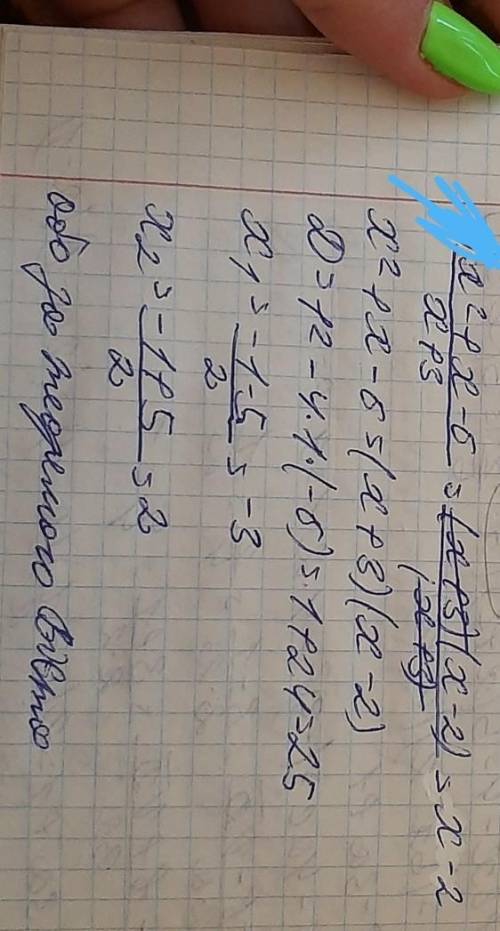 x²+x-6 / x+3 = (x+3)(x-2) / (x+3) = x-2
x²+x-6=(x+3)(x-2)
D=1²-4·1·(-6)=1+24=25
x₁=-1-5/2=-3
x₂=-1+5/2=2
або за теоремою Вієта